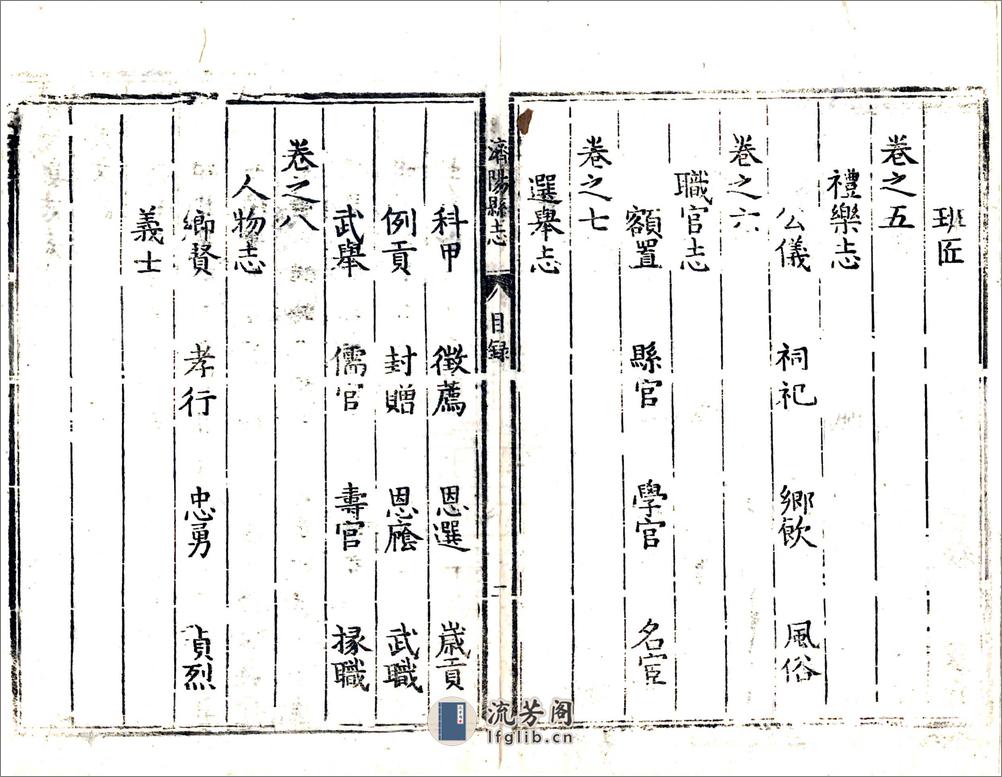 班匠
卷之五
禮樂志
公儀 祠祀 鄉飲 風俗
卷之六
職官志
額置 縣官 學官 名宦
卷之七
選舉志
濟陽縣志 目録 二
科甲 徵薦 恩選 歲貢
例貢 封贈 恩廕 武職
武舉 儒官 壽官 掾職
卷之八
人物志
鄉賢 孝行 忠勇 貞烈
義士
流芳阁
lfglib.cn